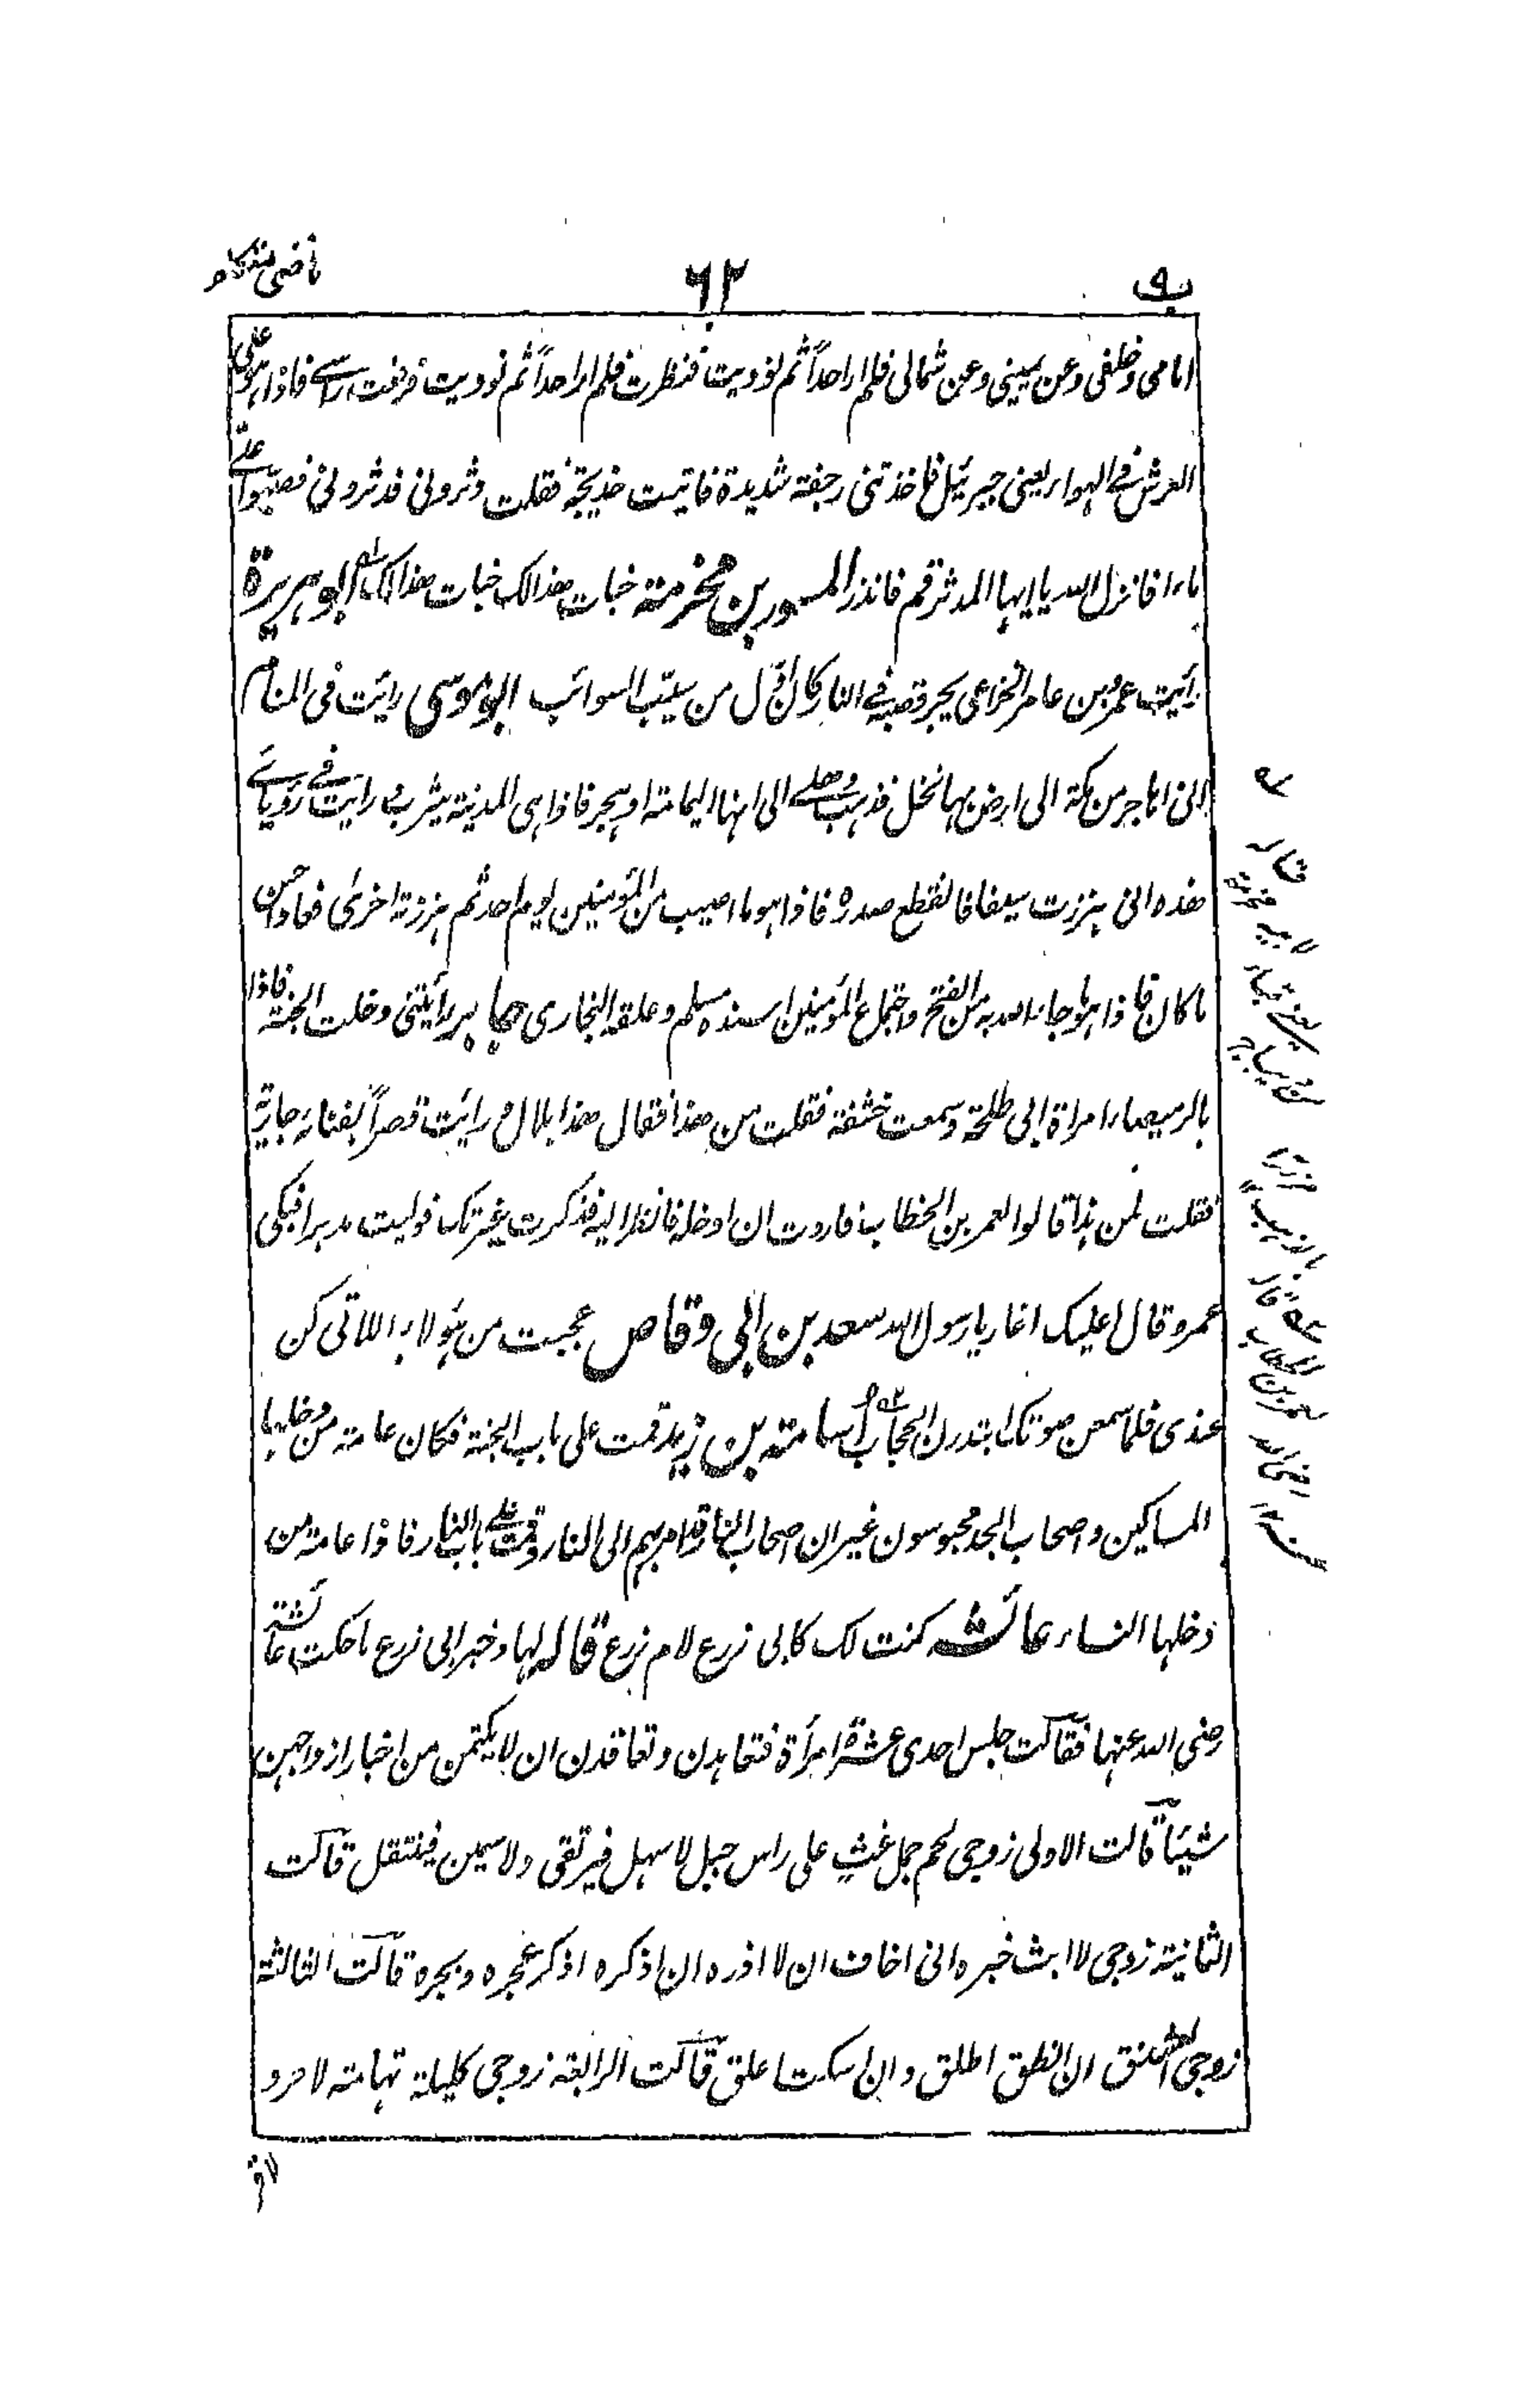 ب ٩
٦٢
ماضى متكلم
امامى وخلفى وعن يمينى وعن شمالى فلم ار احداً ثم نوديت فنظرت فلم ار احداً ثم نوديت فرفعت راسے فاذا هو على
العرش فے الهواء يعنى جبرئيل فاخذتنى رجفة شديدة فاتيت خديجة فقلت دثرونى فدثرونى فصبوا علے
ماء ا فانزل الله يا ايها المدثر قم فانذر المسور بن مخرمة خبات هذا لك خبات هذا لك ابو هريرة
رأيت عمرو بن عامر الخزاعى يجر قصبه فے النار كان اول من سيّب السوائب ابو موسى رايت فى المنام
انى اهاجر من مكة الى ارض بها نخل فذهب وهلے الى انها اليمامة او هجر فاذا هى المدينة يثرب و رايت فے رؤيائے
هذه انى هززت سيفا فانقطع صدره فاذا هو ما اصيب من المؤمنين يوم احد ثم هززته اخرى فعاد احسن
ما كان فاذا هو ما جاء الله به من الفتح واجتماع المؤمنين اسنده مسلم وعلقه البخارى جابر رأيتنى دخلت الجنة فاذا
بالرميصاء امراة ابى طلحة وسمعت خشفة فقلت من هذا فقال هذا بلال و رايت قصراً بفنائه جارية
فقلت لمن هذا قالوا لعمر بن الخطاب فاردت ان ادخله فانظر اليه فذكرت غيرتك فوليت مدبرا فبكى
عمر وقال اعليك اغار يا رسول الله سعد بن ابى وقاص عجبت من هؤلاء اللاتى كن
عندى فلما سمعن صوتك ابتدرن الحجاب اسامة بن زيد قمت على باب الجنة فكان عامة من دخلها
المساكين واصحاب الجد محبوسون غير ان اصحاب النار قد امر بهم الى النار وقمت علے باب النار فاذا عامة من
دخلها النساء عائشة كنت لك كابى زرع لام زرع قاله لها وخبر ابى زرع ما حكت عائشة
رضى الله عنها فقالت جلس احدى عشرة امرأة فتعاهدن وتعاقدن ان لا يكتمن من اخبار ازواجهن
شيئا قالت الاولى زوجى لحم جمل غث على راس جبل لا سهل فيرتقى ولا سمين فينتقل قالت
الثانية زوجى لا ابث خبره انى اخاف ان لا اذره ان اذكره اذكر عجره وبجره قالت الثالثة
زوجى العشنق ان انطق اطلق وان اسكت اعلق قالت الرابعة زوجى كليلة تهامة لا حر و
لا قر